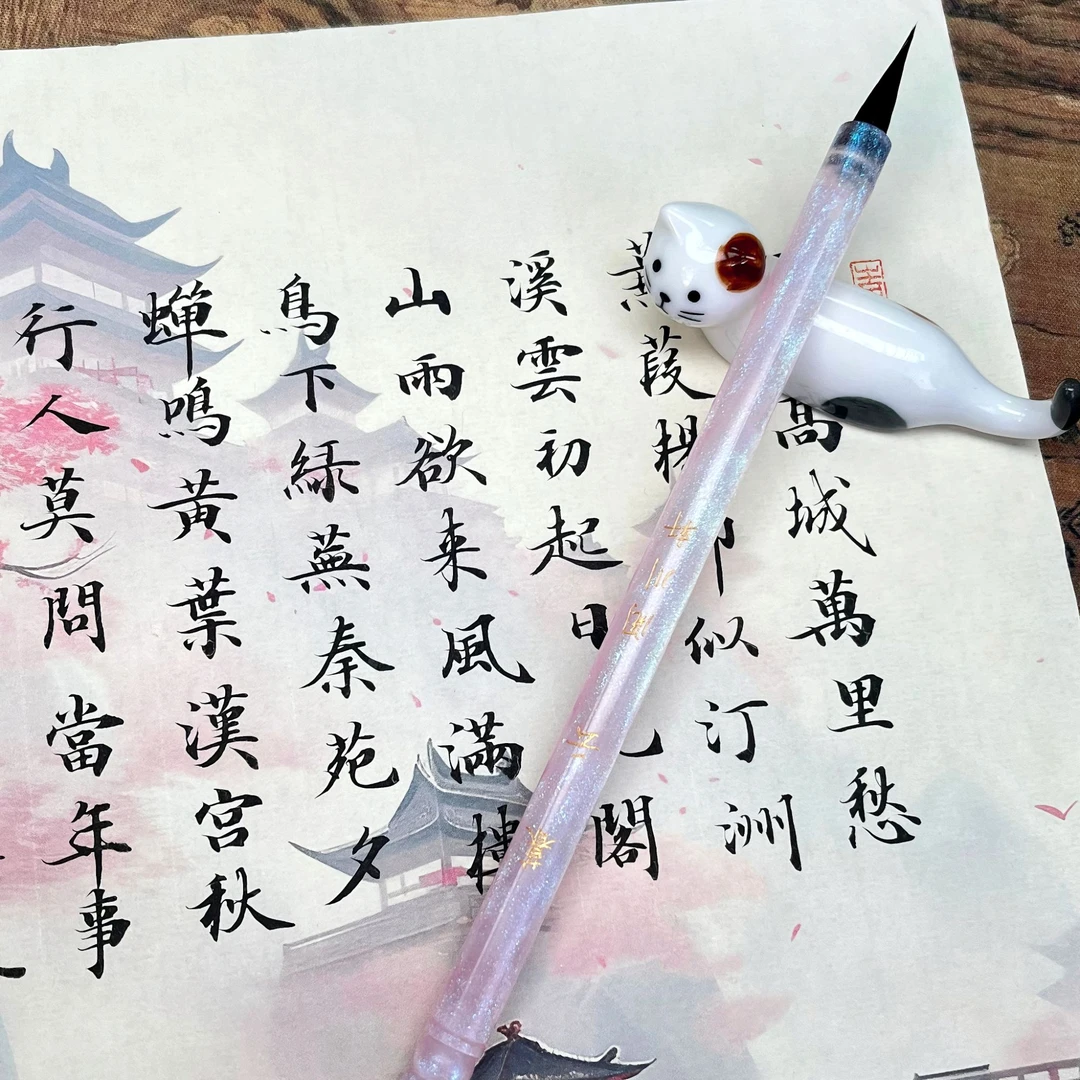 高城萬里愁
葭楊似汀洲
溪雲初起日閣
山雨欲来風滿樓
鳥下綠蕪秦苑夕
蟬鳴黃葉漢宮秋
行人莫問當年事